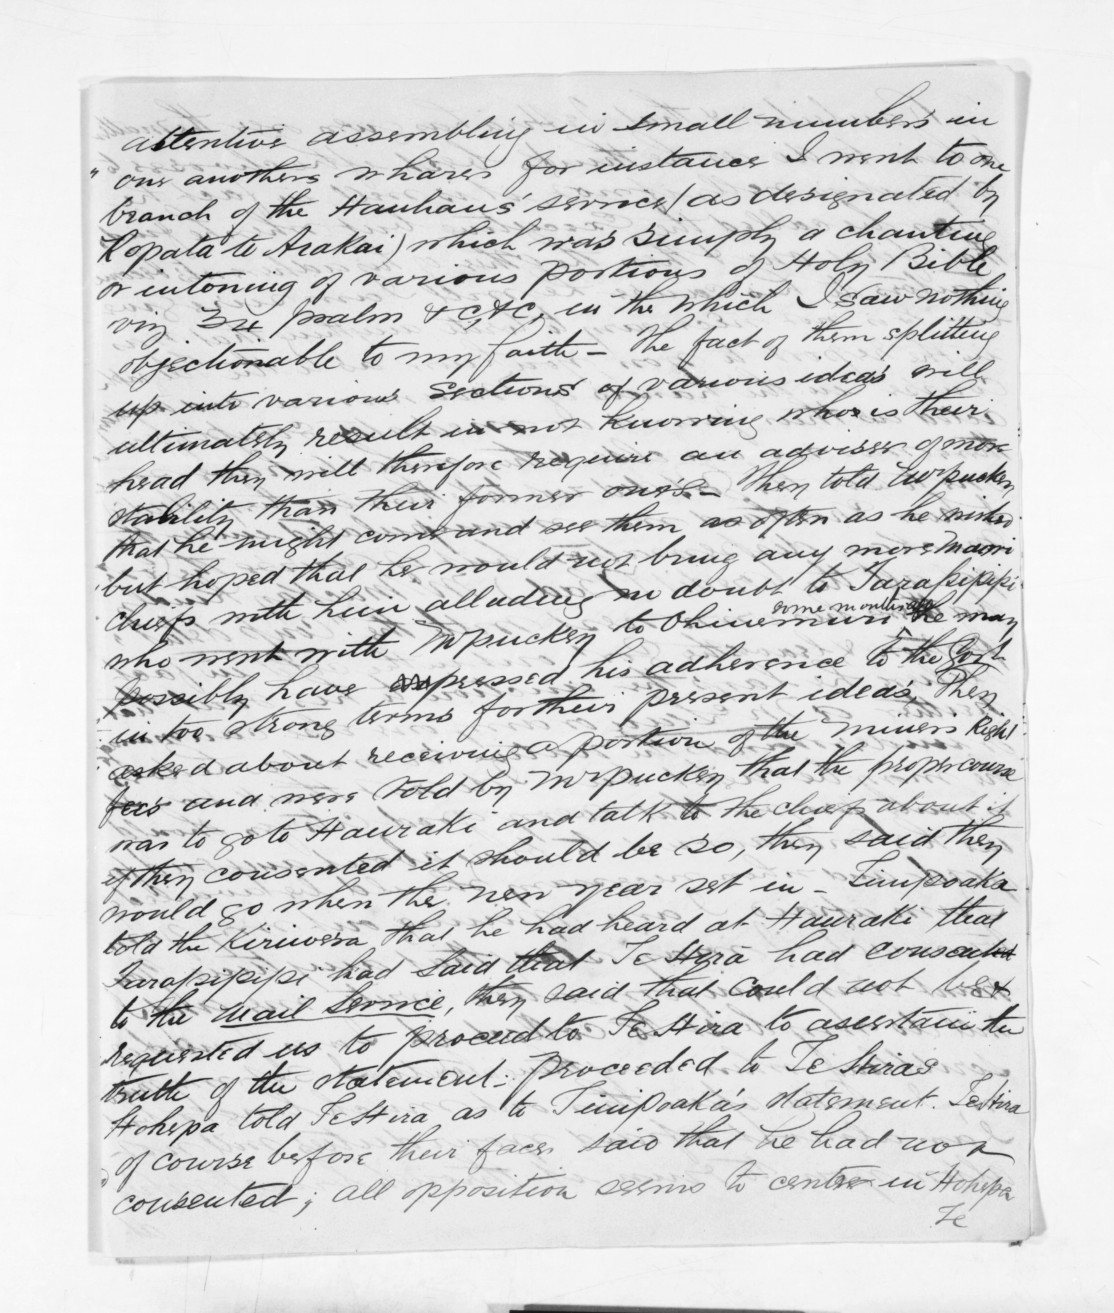 attentive assembling in small numbers in
" one anothers whares for instance I went to one
branch of the Hauhaus' service (as designated by
Ropata te Arakai) which was simply a chanting
or intoning of various portions of Holy Bible
viz 34 psalm &c, &c, in the which I saw nothing
objectionable to my faith - The fact of them splitting
up into various sections of various ideas will
ultimately result in not knowing who is their
head they will therefore require an adviser of more
stability than their former one's - They told Mr Puckey
that he might come and see them as often as he wished
but hoped that he would not bring any more Maori
chiefs with him alluding no doubt to Tarapipipi
who went with Mr Puckey to Ohinemuri some months ago he may
possibly have expressed his adherence to the Govt
in too strong terms for their present ideas, They
asked about receiving a portion of the Miners Right
fees and were told by Mr Puckey that the proper course
was to go to Hauraki and talk to the chiefs about it
if they consented it should be so, they said they
would go when the new year set in - Timipoaka
told the Kiriwera that he had heard at Hauraki that
Tarapipipi had said that Te Hira had consented
to the Mail Service, they said that could not be &
requested us to proceed to Te Hira to ascertain the
truth of the statement: proceeded to Te Hiras
Hohepa told Te Hira as to Timipoaka's statement. Te Hira
of course before their faces said that he had not
consented; all opposition seems to centre in Hohepa
Te